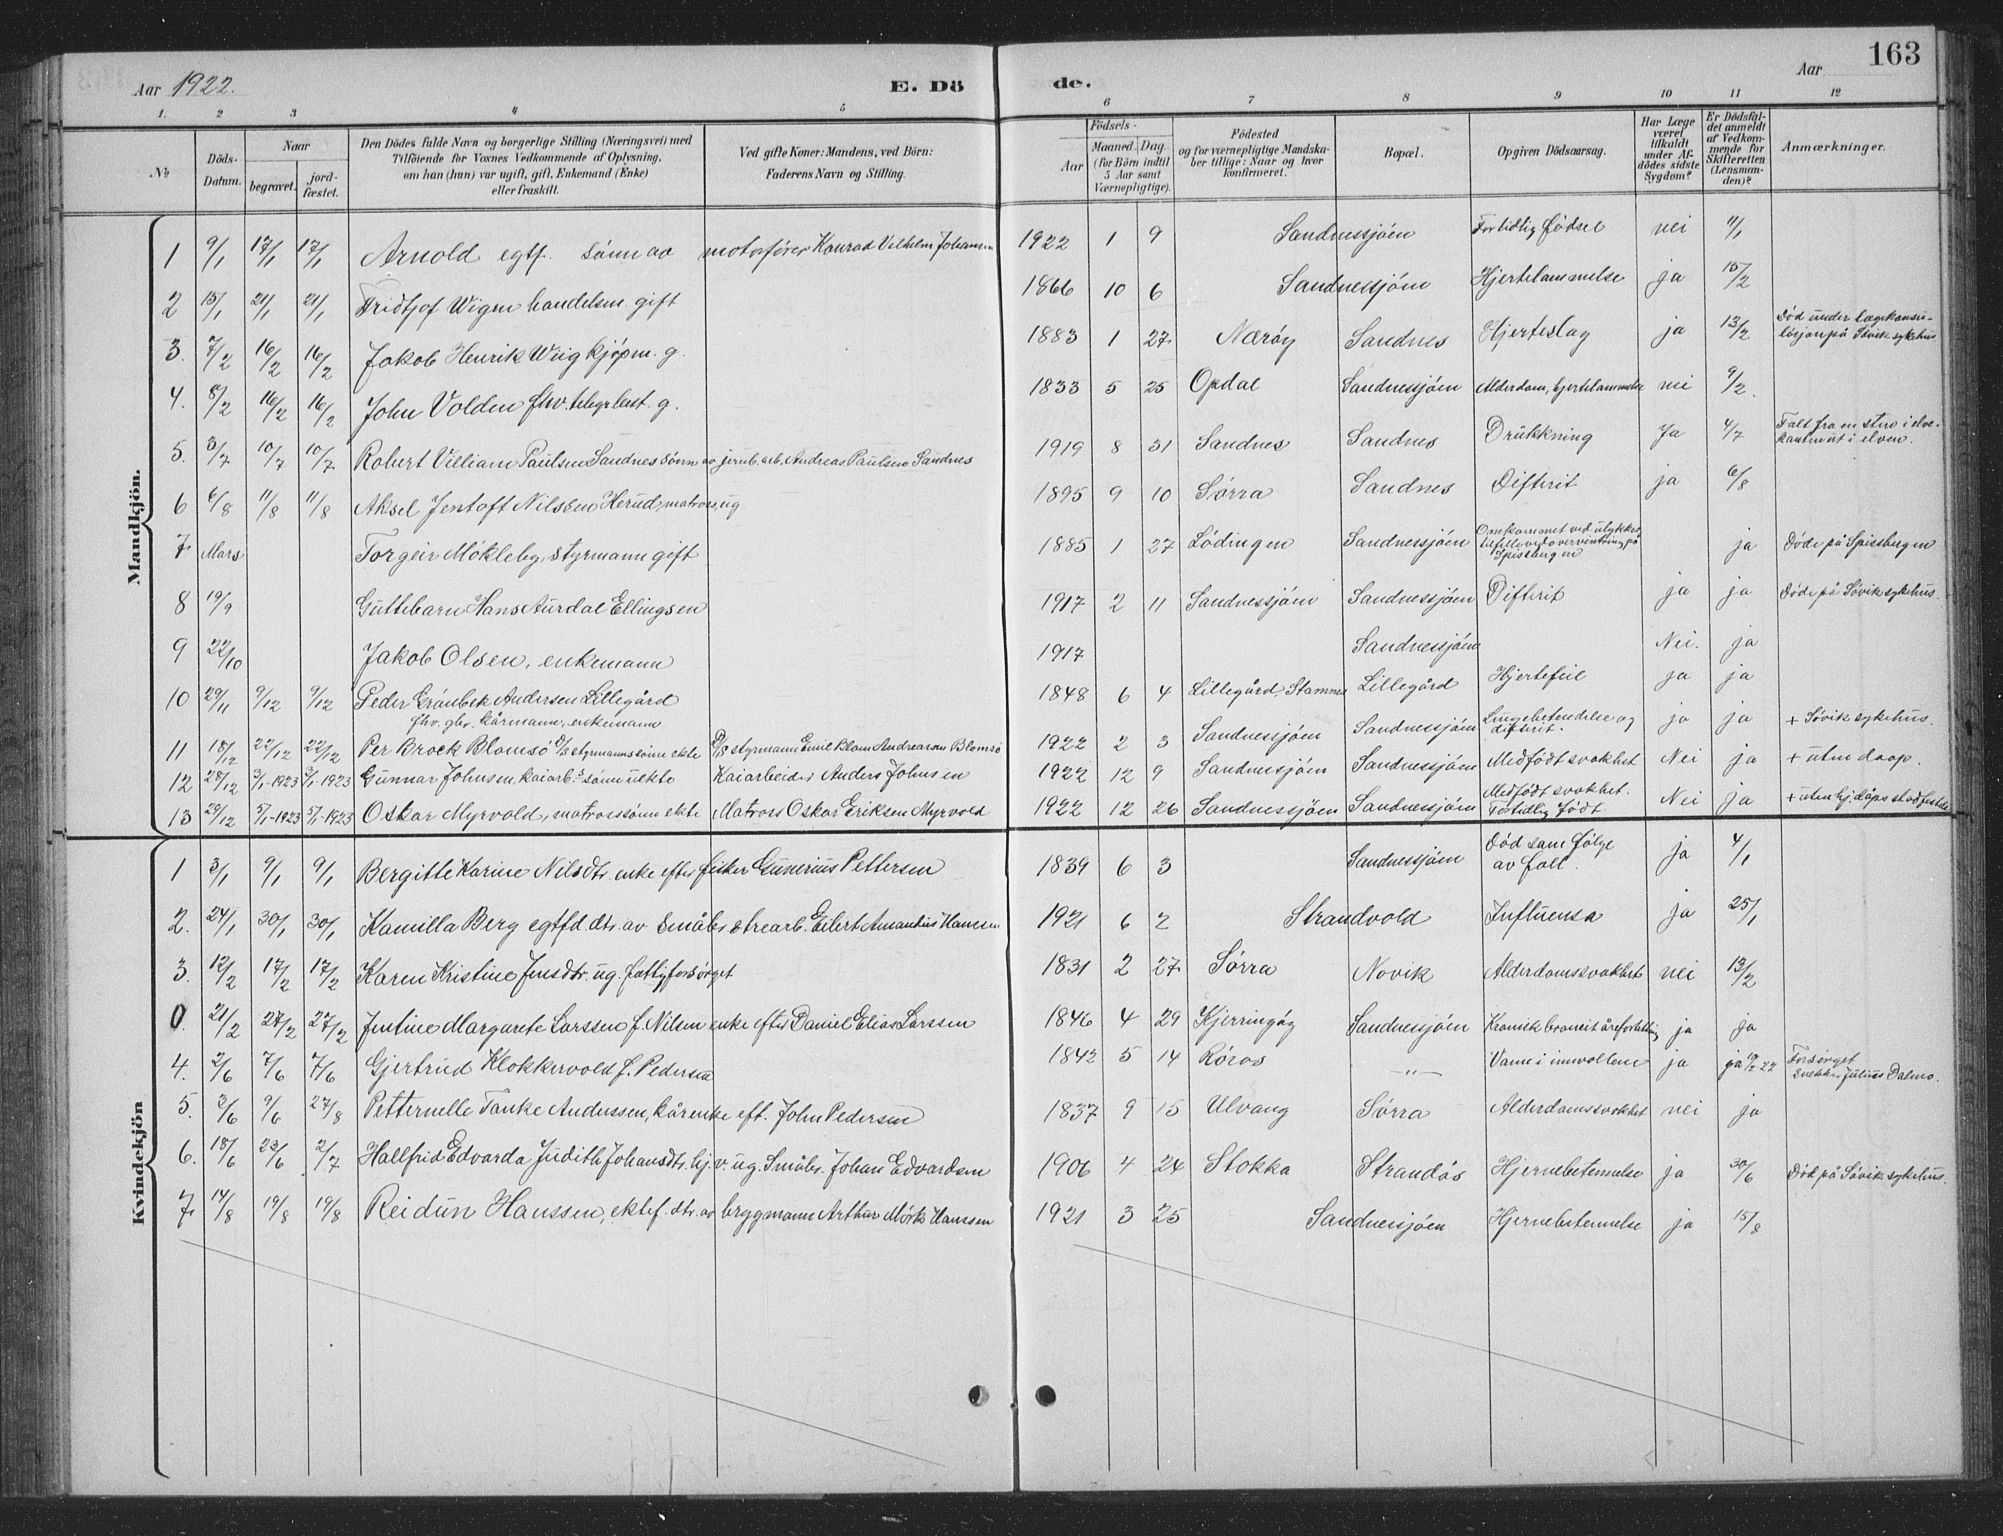 163
Aar 1922. E. Dö de. Aar
1. 2 3 4 5 6 7 8 9 10 11 12
№ Döds-Datum. Naar begravet. jord-fæstet. Den Dödes fulde Navn og borgerlige Stilling (Næringsvei) med Tilföiende for Voxnes Vedkommende af Oplysning, om han (hun) var ugift, gift, Enkemand (Enke) eller fraskilt. Ved gifte Koner: Mandens, ved Börn: Faderens Navn og Stilling. Födsels- Aar Maaned. Dag. (for Börn indtil 5 Aar samt Værnepligtige). Födested og for værnepligtige Mandskaber tillige: Naar og hvor konfirmeret. Bopæl. Opgiven Dödsaarsag. Har Læge været tilkaldt under Afdödes sidste Sygdom? Er Dödsfaldet anmeldt af Vedkommende for Skifteretten (Lensmanden)? Anmærkninger.
Mandkjön.
1 9/1 17/1 17/1 Arnold egtf. sönn av motorförer Konrad Vilhelm Johansen 1922 1 9 Sandnessjöen For tidlig födsel nei 11/1
2 15/1 21/1 21/1 Fridtjof Wigen handelsm. gift 1866 10 6 Sandnessjöen Hjertelammelse ja 15/2
3. 7/2 16/2 16/2 Jakob Henrik Wiig kjøpm. g. 1883 1 27 Nærøy Sandnes Hjerteslag ja 13/2 Død under lægekonsultasjon på Søvik sykehus
4. 8/2 16/2 16/2 John Volden fhv. telegr.best. g. 1833 5 25 Opdal Sandnessjöen Alderdom, hjertelammelse nei 9/2.
5. 3/7 10/7 10/7 Robert Villiam Paulsen Sandnes sönn av jernb.arb. Andreas Paulsen Sandnes 1919 8 31 Sandnes Sandnes Drukkning Ja 4/7 Falt fra en sten i elvekanten ut i elven.
6 6/8 11/8 11/8 Aksel Jentoft Nilssen Herud, matros, ug 1895 9 10 Sørra Sandnes Difterit ja 6/8
7 Mars Torgeir Mökleby, styrmann gift 1885 1 27 Lödingen Sandnessjöen Omkommet ved ulykkestilfelle ved overvintring på Spissbergen ja Döde på Spissbergen
8 19/9 Guttebarn Hans Aurdal Ellingsen 1917 2 11 Sandnessjöen Sandnessjöen Difterit ja ja Döde på Søvik sykehus.
9 22/10 Jakob Olsen, enkemann 1917 Sandnessjöen Nei. ja
10 29/11 9/12 9/12 Peder Grönbek Andersen Lillegård 1848 6 4 Lillegård, Stamnes Lillegård Hjertefeil ja ja
fhv. gbr. kårmann, enkemann
11 18/12 22/12 22/12 Per Brock Blomsö styrmannssönn ekte styrmann Emil Blom Andreassen Blomsö 1922 2 3 Sandnessjöen Sandnessjöen Lungebetendelse og difterit. ja ja + Søvik sykehus.
12 28/12 3/1-1923 3/1-1923 Gunnar Johnsen, kaiarb.s sönn uekte Kaiarbeider Anders Johnsen 1922 12 9 Sandnessjöen Sandnessjöen Medfödt svakhet Nei ja + uten daap.
13 29/12 5/1-1923 5/1-1923 Oskar Myrvold, matrossönn ekte Matros Oskar Eriksen Myrvold 1922 12 26 Sandnessjöen Sandnessjöen Medfödt svakhet. For tidlig födt Nei ja + uten hj.dåps stadfestelse
Kvindekjön
1 3/1 9/1 9/1 Bergitte Karine Nilsdtr. enke efter fisker Gunerius Pettersen 1839 6 3 Sandnessjöen Død som fölge av fall. ja 4/1
2. 24/1 30/1 30/1 Kamilla Berg egtfd. dtr. av Småbr. strearb. Eilert Amandus Hansen 1921 6 2 Strandvold Influensa ja 25/1
3. 12/2 17/2 17/2 Karen Kristine Jensdtr. ug. fattigforsörget 1831 2 27 Sørra Novik Alderdomssvakhet nei 13/2
0. 21/2 27/2 27/2 Jentine Margarete Larssen f. Nilsen enke efter Daniel Elias Larssen 1846 4 29 Kjerringöy Sandnessjöen Kronisk bronkit ja ja
4. 2/6 7/6 7/6 Gjertrud Klokkervold f. Pedersen 1842 5 14 Röros —„— Vann i innvollene ja ja Forsörget snekker Julius Dalmo.
5. 3/6 9/6 27/8 Petternelle Tanke Andersen, kårenke eft. John Pedersen 1837 9 15 Ulvang Sørra Alderdomssvakhet nei ja
6. 18/6 23/6 2/7 Hallfrid Edvarda Judith Johansdtr. hj.v. ug. Småbr. Johan Edvardsen 1906 4 24 Stokka Strandås Hjernebetennelse ja 30/6 Död på Søvik sykehus.
7 14/8 19/8 19/8 Reidun Hanssen, ektef. dtr. av bryggmann Arthur Mörk Hanssen 1921 3 25 Sandnessjöen Hjernebetennelse ja 15/8